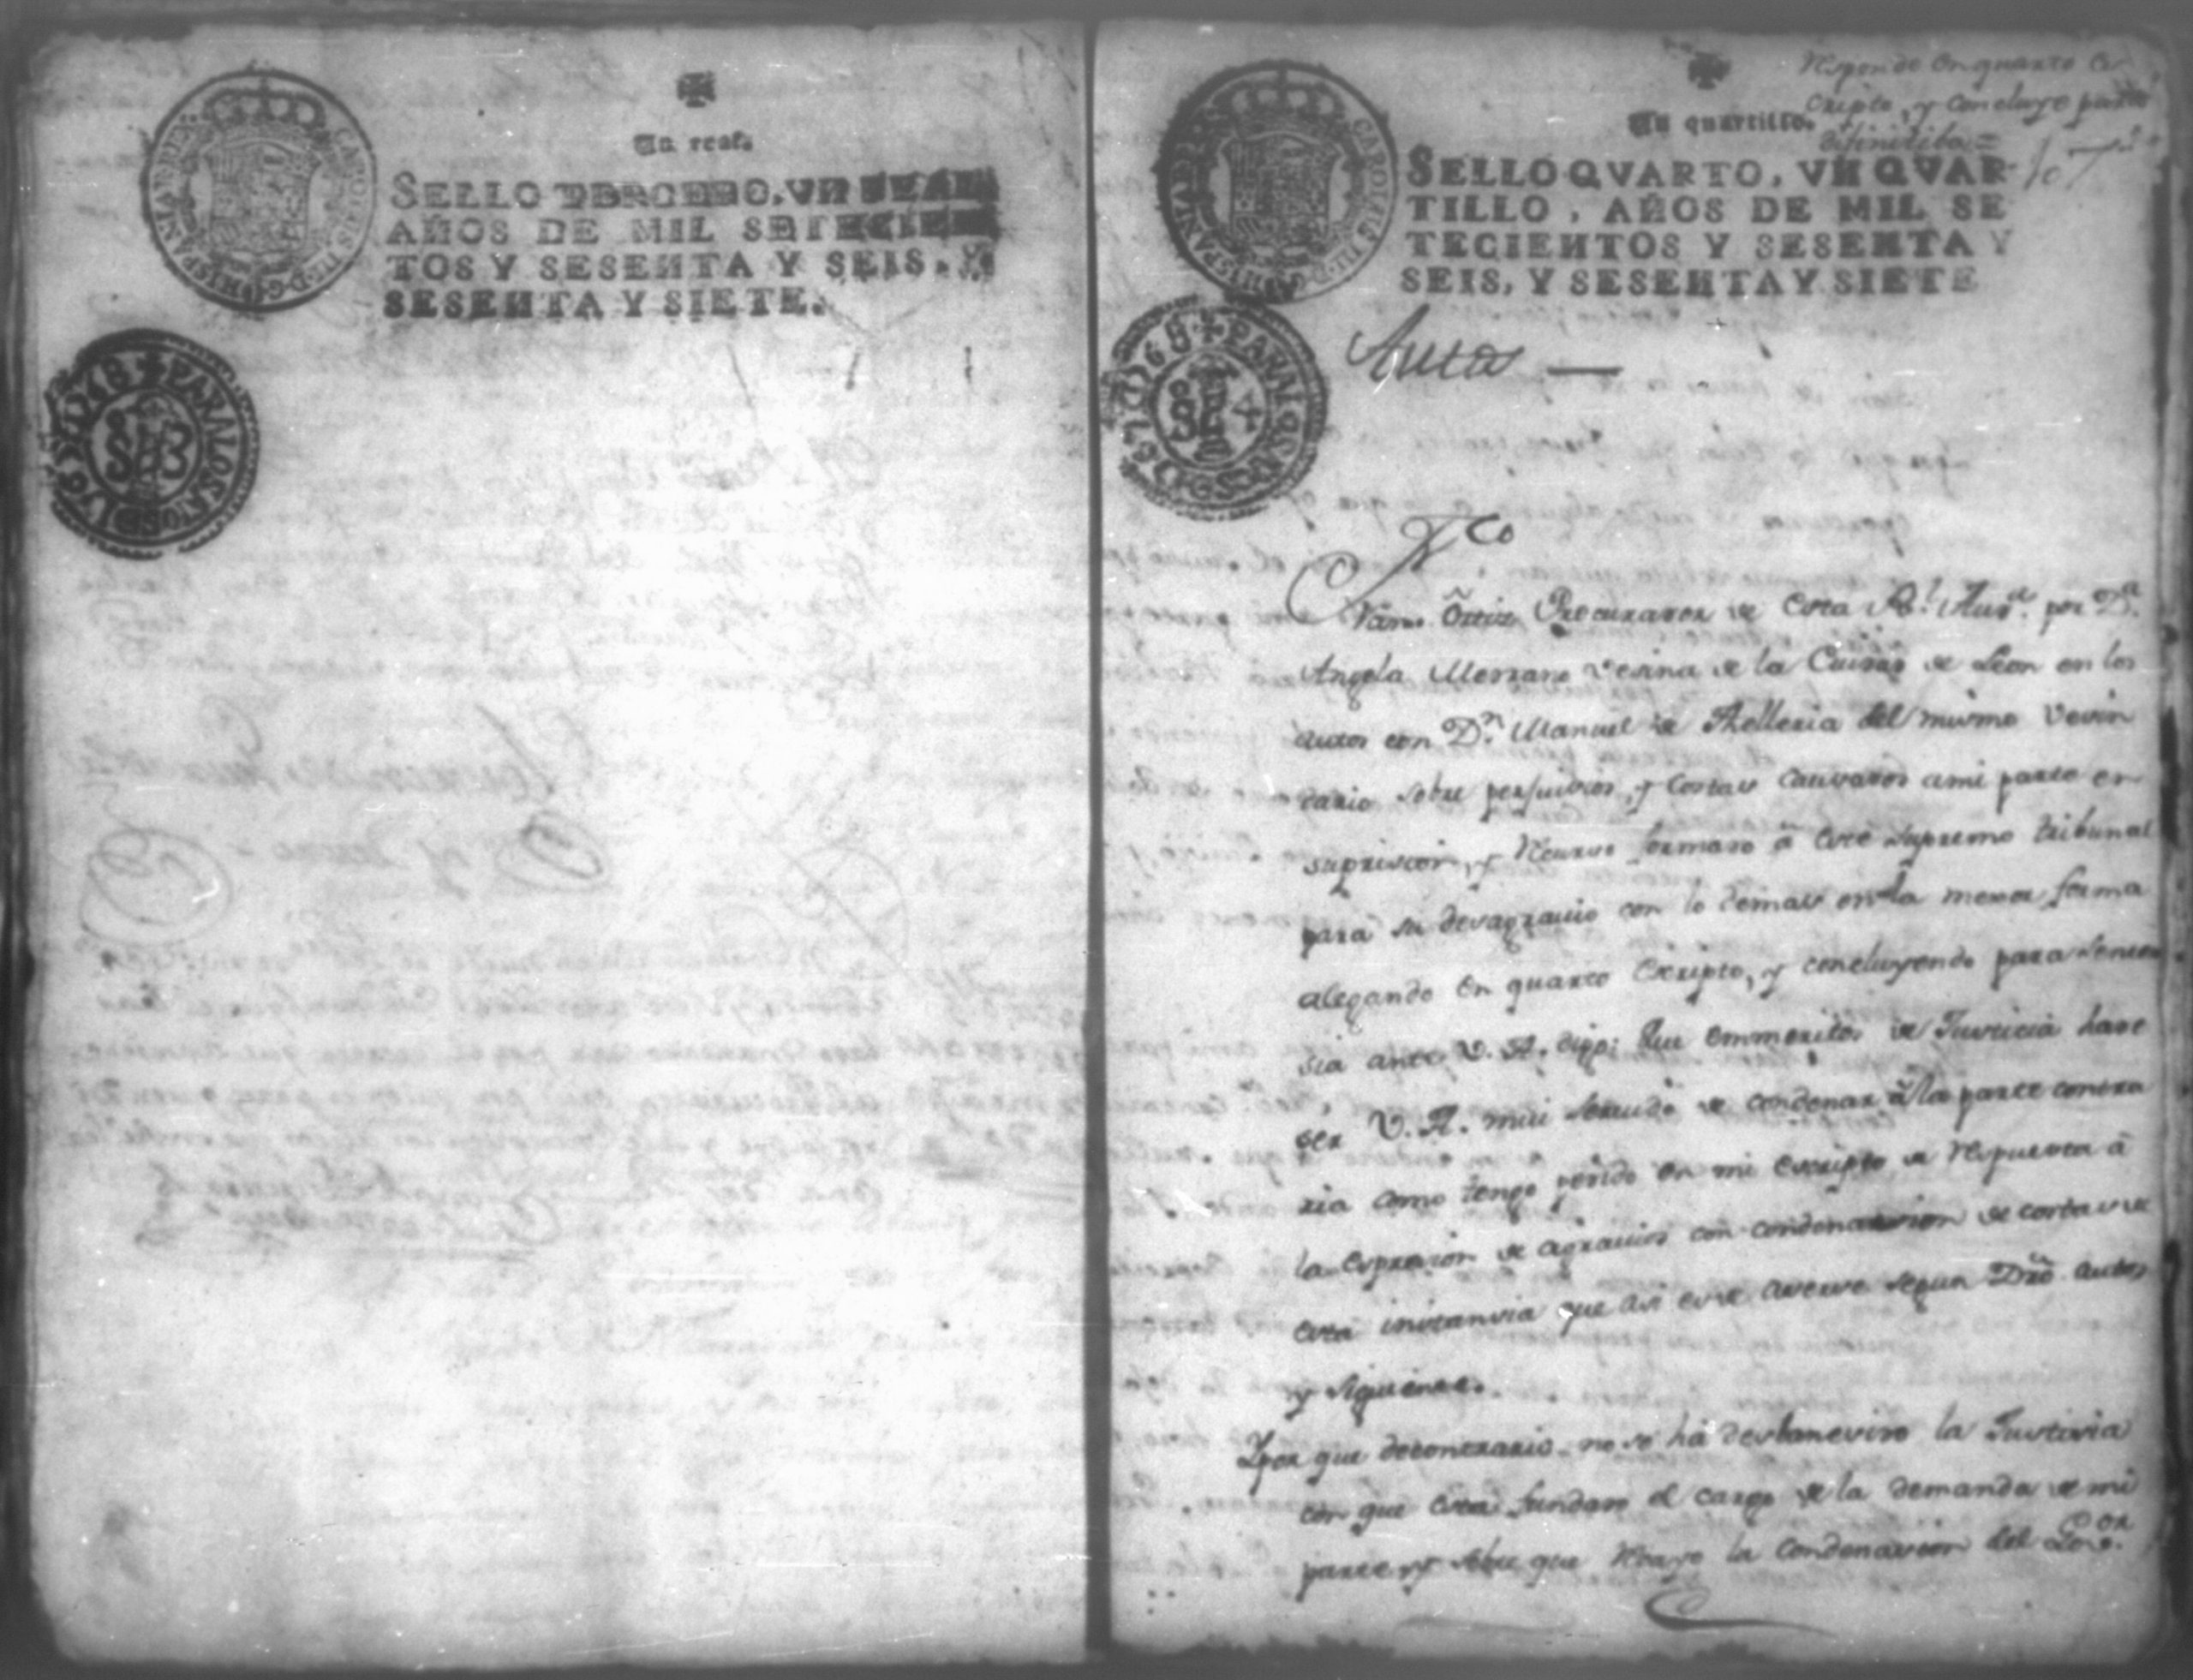 Un real.
SELLO TERCERO, VN REAL
AÑOS DE MIL SETECIEN
TOS Y SESENTA Y SEIS. Y
SESENTA Y SIETE.
CAROLUS III. D. G. HISPANIAR. REX
PARA LOS AÑOS DE 1768
SE3
Responde en quarto es
cripto, y concluye para
difinitiba =
Un quartillo.
107
SELLO QVARTO, VN QVAR
TILLO, AÑOS DE MIL SE
TECIENTOS Y SESENTA Y
SEIS, Y SESENTA Y SIETE
CAROLUS III. D. G. HISPANIAR. REX
PARA LOS AÑOS DE 1768
SE4
Autos —
Ortiz Procurador de esta Rl. Auda. por Da.
Angela vesina de la Ciudad de Leon en los
autos con Dn. Manuel de Thelleria del mismo vecin
dario sobre perjuicios, y costas causados a mi parte en
su pricion, y Recurso formado â este Supremo tribunal
para su desagrauio con lo demas en la mexor forma
alegando en quarto escripto, y concluyendo para senten
sia ante V. A. digo: Que en meritos de Justicia hase
ser V. A. mui seruido de condenar â la parte contra
ria como tengo pedido en mi escripto de respuesta â
la expresion de agrauios con condenassion de costas de
esta instansia que asi es de aserse segun Dro. autos
y siguiente.
Y por que de contrario no se hà desbanesido la Justisia
con que està fundado el cargo de la demanda de mi
parte, y sobre que recayo la condenassion del